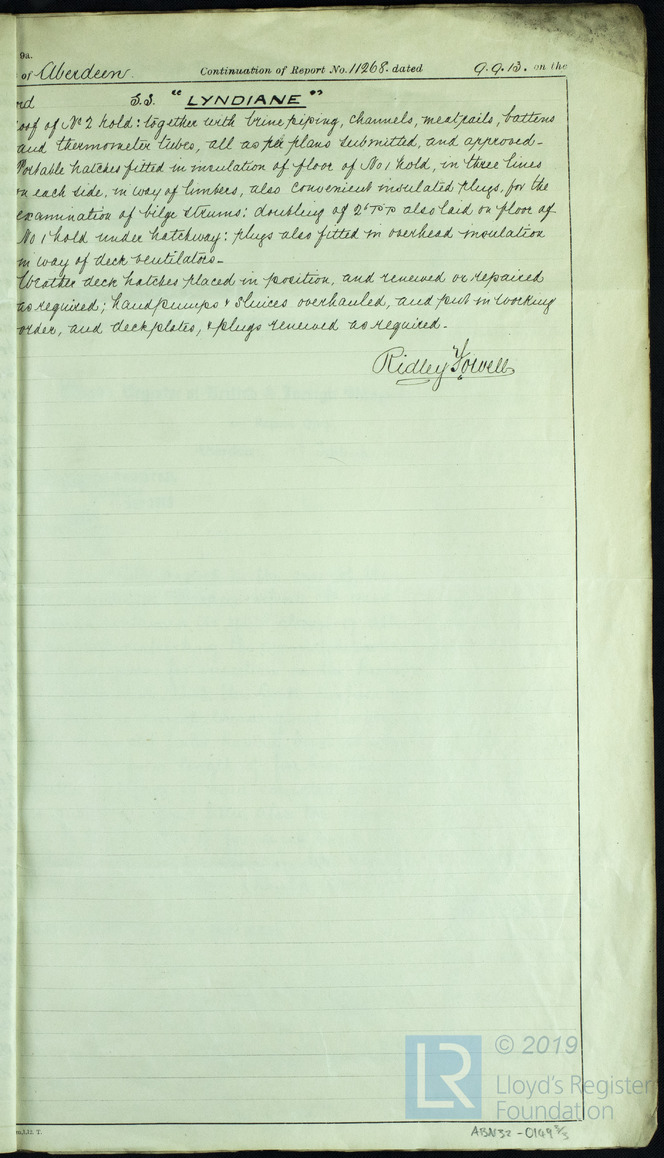 9a.
of Aberdeen. Continuation of Report No. 11268. dated 9.9.13. on the
S.S. "LYNDIANE"
oof of No 2 hold: together with brine piping, channels, meatrails, battens
and thermometer tubes, all as per plans submitted, and approved-
Portable hatches fitted in insulation of floor of No 1 hold, in three lines
on each side, in way of limbers, also convenient insulated plugs, for the
examination of bilge strums: doubling of 2" T&P also laid on floor of
No 1 hold under hatchway: plugs also fitted in overhead insulation
in way of deck ventilators-
Weather deck hatches placed in position, and renewed or repaired
as required; handpumps & sluices overhauled, and put in working
order, and deckplates, & plugs renewed as required-
Ridley Fowell
© 2019
LR
Lloyd's Register
Foundation
ABN32-0149 3/3